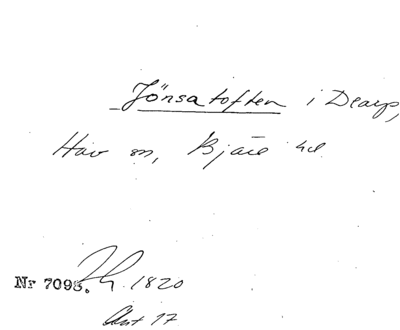 Jönsatoften i Dearp,
Hov sn, Bjäre hd
Nr 7098. 1820
Akt 17